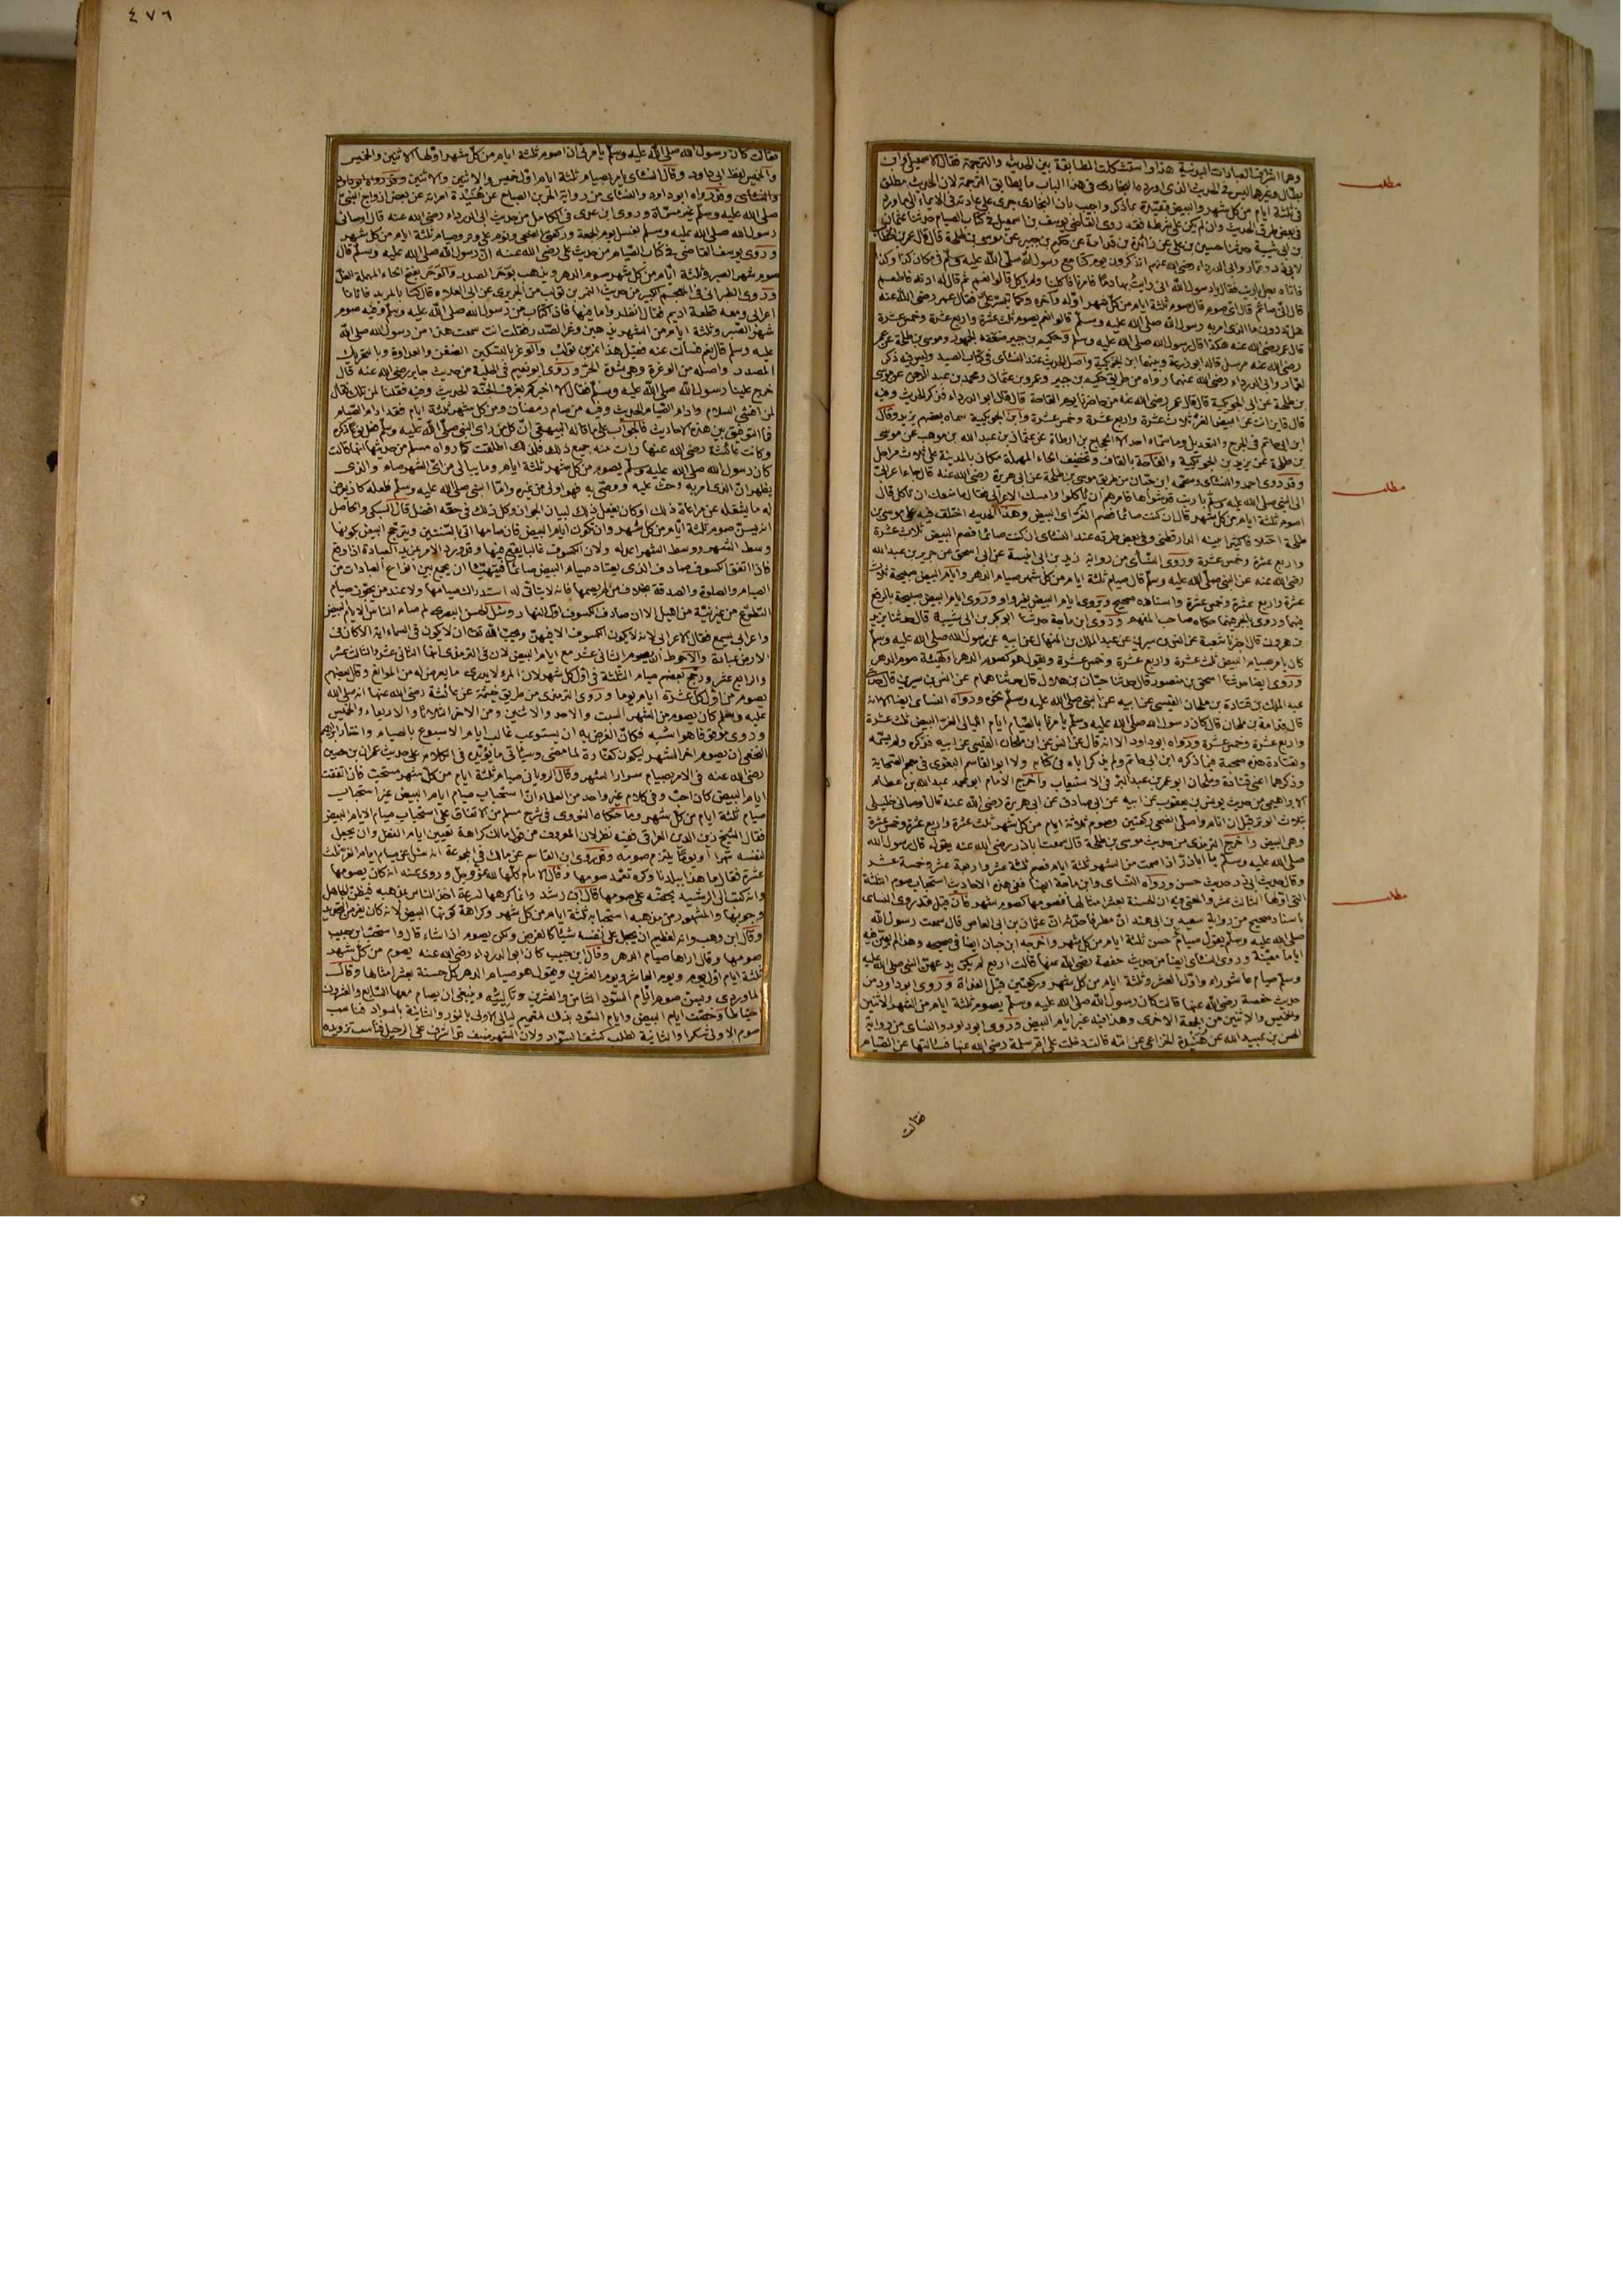 ٤٧٦
وهما اشرف العبادات البدنية هذا واستشكلت المطابقة بين الحديث والترجمة فقال الاسمعيلي وابن
بطال وغيرهما ليس في الحديث الذي اورده البخاري في هذا الباب ما يطابق الترجمة لان الحديث مطلق
في ثلثة ايام من كل شهر والبيض مقيدة بما ذكر واجيب بان البخاري جرى على عادته في الايماء الى ما ورد
في بعض طرق الحديث وان لم يكن على شرطه فقد روى القاضي يوسف بن اسمعيل في كتاب الصيام حدثنا عثمان
بن ابي شيبة حدثنا حسين بن علي عن زائدة بن قدامة عن حكيم بن جبير عن موسى بن طلحة قال قال عمر بن الخطاب
لابي ذر وعمار وابي الدرداء رضي الله عنهم اتذكرون يوم كنا مع رسول الله صلى الله عليه وسلم في مكان كذا وكذا
فاتاه رجل بارنب فقال يا رسول الله اني رايت بها دما فامرنا فاكلنا ولم ياكل قالوا نعم ثم قال له ادنه فاطعم
قال اني صائم قال اي صوم قال صوم ثلثة ايام من كل شهر اوله وآخره وكما تيسر علي فقال عمر رضي الله عنه
هل تدرون ما الذي امر به رسول الله صلى الله عليه وسلم قالوا نعم يصوم ثلث عشرة واربع عشرة وخمس عشرة
قال عمر رضي الله عنه هكذا قال رسول الله صلى الله عليه وسلم وحكيم بن جبير ضعفه الجمهور وموسى بن طلحة عن عمر
رضي الله عنه مرسل قاله ابو زرعة وبينهما ابن الحوتكية واصل الحديث عند النسائي في كتاب الصيد وليس فيه ذكر
لعمار وابي الدرداء رضي الله عنهما رواه من طريق حكيم بن جبير وعمرو بن عثمان ومحمد بن عبد الرحمن عن موسى
بن طلحة عن ابن الحوتكية قال قال عمر رضي الله عنه من حاضرنا يوم القاحة قال قال ابو الدرداء فذكر الحديث وفيه
قال فاين انت عن البيض الغر ثلاث عشرة واربع عشرة وخمس عشرة وابن الحوتكية سماه بعضهم يزيد وقال
ابن ابي حاتم في الجرح والتعديل وما سماه احد الا الحجاج بن ارطاة عن عثمان بن عبد الله بن موهب عن موسى
بن طلحة عن يزيد بن الحوتكية والقاحة بالقاف وتخفيف الحاء المهملة مكان بالمدينة على ثلاث مراحل
وقد روى احمد والنسائي وصححه ابن حبان من طريق موسى بن طلحة عن ابي هريرة رضي الله عنه قال جاء اعرابي
الى النبي صلى الله عليه وسلم بارنب قد شواها فامرهم ان ياكلوا وامسك الاعرابي فقال ما منعك ان تاكل قال
اصوم ثلثة ايام من كل شهر قال ان كنت صائما فصم الغر اي البيض وهذا الحديث اختلف فيه على موسى بن
طلحة اختلافا كثيرا بينه الدارقطني وفي بعض طرقه عند النسائي ان كنت صائما فصم البيض ثلاث عشرة
واربع عشرة وخمس عشرة وروى النسائي من رواية زيد بن ابي انيسة عن ابي اسحق عن جرير بن عبد الله
رضي الله عنه عن النبي صلى الله عليه وسلم قال صيام ثلثة ايام من كل شهر صيام الدهر وايام البيض صبيحة ثلاث
عشرة واربع عشرة وخمس عشرة واسناده صحيح ويروى ايام البيض بغير واو وروى ايام البيض صبيحة بالرفع
فيهما وروى بالجر فيهما حكاه صاحب المفهم وروى ابن ماجة حدثنا ابو بكر بن ابي شيبة قال حدثنا يزيد
بن هرون قال اخبرنا شعبة عن انس بن سيرين عن عبد الملك بن المنهال عن ابيه عن رسول الله صلى الله عليه وسلم
كان يامر بصيام البيض ثلث عشرة واربع عشرة وخمس عشرة ويقول هو كصوم الدهر او كهيئة صوم الدهر
وروى ايضا حدثنا اسحق بن منصور قال حدثنا حبان بن هلال قال حدثنا همام عن انس بن سيرين قال حدثني
عبد الملك بن قتادة بن ملحان القيسي عن ابيه عن النبي صلى الله عليه وسلم نحوه ورواه النسائي ايضا الا انه
قال قدامة بن ملحان قال كان رسول الله صلى الله عليه وسلم يامرنا بالصيام ايام الليالي الغر البيض ثلث عشرة
واربع عشرة وخمس عشرة ورواه ابو داود الا انه قال عن انس عن ابن ملحان القيسي عن ابيه فذكره ولم يسمه
ولقتادة هذه صحبة فيما ذكره ابن ابي حاتم ولم يذكر اباه في كتابه ولا ابو القاسم البغوي في معجم الصحابة
وذكرهما اعني قتادة وملحان ابو عمر بن عبد البر في الاستيعاب واخرج الامام ابو محمد عبد الله بن عطاء
الابراهيمي من حديث يونس بن يعقوب عن ابيه عن ابي صادق عن ابي هريرة رضي الله عنه قال اوصاني خليلي
بثلاث الوتر قبل ان انام واصلي الضحى ركعتين وصوم ثلاثة ايام من كل شهر ثلث عشرة واربع عشرة وخمس عشرة
وهي البيض واخرج الترمذي من حديث موسى بن طلحة قال سمعت ابا ذر رضي الله عنه يقول قال رسول الله
صلى الله عليه وسلم يا ابا ذر اذا صمت من الشهر ثلثة ايام فصم ثلثة عشر واربعة عشر وخمسة عشر
وقال حديث ابي ذر حديث حسن ورواه النسائي وابن ماجة ايضا ففي هذه الاحاديث استحباب صوم الثلثة
التي اولها الثالث عشر والمعنى فيه ان الحسنة بعشر امثالها فصومها كصوم شهر فان قيل قد روى النسائي
باسناد صحيح من رواية سعيد بن ابي هند ان مطرفا حدثه ان عثمان بن ابي العاص قال سمعت رسول الله
صلى الله عليه وسلم يقول صيام حسن ثلثة ايام من كل شهر واخرجه ابن حبان ايضا في صحيحه وهذا لم يعين فيه
اياما معينة وروى النسائي ايضا من حديث حفصة رضي الله عنها قالت اربع لم يكن يدعهن النبي صلى الله عليه
وسلم صيام عاشوراء واول العشر وثلثة ايام من كل شهر وركعتين قبل الغداة وروى ابو داود من
حديث حفصة رضي الله عنها قالت كان رسول الله صلى الله عليه وسلم يصوم ثلثة ايام من الشهر الاثنين
والخميس والاثنين من الجمعة الاخرى وهذا فيه غير ايام البيض وروى ابو داود والنسائي من رواية
الحسن بن عبيد الله عن هنيدة الخزاعي عن امه قالت دخلت على ام سلمة رضي الله عنها فسالتها عن الصيام
فقالت
مطلب
مطلب
مطلب
فقالت كان رسول الله صلى الله عليه وسلم يامرني ان اصوم ثلثة ايام من كل شهر اولها الاثنين والخميس
والخميس لفظ ابي داود وقال النسائي يامر بصيام ثلثة ايام اول خميس والاثنين والاثنين وقد رواه ابو داود
والنسائي وقد رواه ابو داود والنسائي من رواية الحر بن الصياح عن هنيدة امراته عن بعض ازواج النبي
صلى الله عليه وسلم غير مسماة وروى ابن عدي في الكامل من حديث ابي الدرداء رضي الله عنه قال اوصاني
رسول الله صلى الله عليه وسلم بغسل يوم الجمعة وركعتي الضحى ونوم على وتر وصيام ثلثة ايام من كل شهر
وروى يوسف القاضي في كتاب الصيام من حديث علي رضي الله عنه ان رسول الله صلى الله عليه وسلم قال
صوم شهر الصبر وثلثة ايام من كل شهر صوم الدهر ويذهب بوحر الصدر والوحر بفتح الحاء المهملة الغل
وروى الطبراني في المعجم الكبير من حديث النمر بن تولب من الجريري عن ابي العلاء قال كنا بالمربد فاتانا
اعرابي ومعه قطعة اديم فقال انظروا ما فيها فاذا كتاب من رسول الله صلى الله عليه وسلم وفيه صوم
شهر الصبر وثلثة ايام من الشهر يذهبن وغر الصدر فقلت انت سمعت هذا من رسول الله صلى الله
عليه وسلم قال نعم فسالت عنه فقيل هذا نمر بن تولب والوغر بالتسكين الضغن والعداوة وبالتحريك
المصدر واصله من الوغرة وهي شدة الحر وروى ابو نعيم في الحلية من حديث جابر رضي الله عنه قال
خرج علينا رسول الله صلى الله عليه وسلم فقال الا اخبركم بغرف الجنة الحديث وفيه فقلنا لمن تلك فقال
لمن افشى السلام وادام الصيام الحديث وفيه من صام رمضان ومن كل شهر ثلثة ايام فقد ادام الصيام
فما التوفيق بين هذه الاحاديث فالجواب على ما قاله البيهقي ان كل من راى النبي صلى الله عليه وسلم فعل نوعا ذكره
وكانت عائشة رضي الله عنها رات منه جميع ذلك فلذلك اطلقت كما رواه مسلم من حديثها انها قالت
كان رسول الله صلى الله عليه وسلم يصوم من كل شهر ثلثة ايام وما يبالي من اي الشهر صام والذي
يظهر ان الذي امر به وحث عليه ووصى به فهو اولى من غيره واما النبي صلى الله عليه وسلم فلعله كان يعرض
له ما يشغله عن مراعاة ذلك او كان يفعل ذلك لبيان الجواز وكل ذلك في حقه افضل قال السبكي والحاصل
انه يسن صوم ثلثة ايام من كل شهر وان تكون ايام البيض فان صامها اتى بالسنتين ويترجح البيض بكونها
وسط الشهر ووسط الشهر اعدله ولان الكسوف غالبا يقع فيها وقد ورد الامر بمزيد العبادة اذا وقع
فاذا اتفق الكسوف صادف الذي يعتاد صيام البيض صائما فيتهيأ ان يجمع بين انواع العبادات من
الصيام والصلوة والصدقة بخلاف من لم يصمها فانه لا يتاتى له استدراك صيامها ولا عند من يجوز صيام
التطوع من غير نية من الليل الا ان صادف الكسوف اول النهار وسئل الحسن البصري لم صام الناس الايام البيض
واعرابي يسمع فقال الاعرابي لانه لا يكون الكسوف الا فيهن ويحب الله تعالى ان لا يكون في السماء آية الا كان في
الارض عبادة والاحوط ان يصوم الثاني عشر مع ايام البيض لان في الترمذي انها الثاني عشر والثالث عشر
والرابع عشر ورجح بعضهم صيام الثلثة في اول كل شهر لان المرء لا يدري ما يعرض له من الموانع وقال بعضهم
يصوم من اول كل عشرة ايام يوما وروى الترمذي من طريق خيثمة عن عائشة رضي الله عنها انه صلى الله
عليه وسلم كان يصوم من الشهر السبت والاحد والاثنين ومن الاخر الثلاثاء والاربعاء والخميس
وروى موقوفا وهو اشبه فكان الغرض به ان يستوعب غالب ايام الاسبوع بالصيام واختار ابراهيم
النخعي ان يصوم آخر الشهر ليكون كفارة لما مضى وسيأتي ما يؤيده في الكلام على حديث عمران بن حصين
رضي الله عنه في الامر بصيام سرار الشهر وقال الروياني صيام ثلثة ايام من كل شهر مستحب فان اتفقت
ايام البيض كان احب وفي كلام غير واحد من العلماء ان استحباب صيام ايام البيض غير استحباب
صيام ثلثة ايام من كل شهر وما حكاه النووي في شرح مسلم من الاتفاق على استحباب صيام الايام البيض
فقال الشيخ زين الدين العراقي فيه نظر لان المعروف من قول مالك كراهة تعيين ايام النفل وان يجعل
لنفسه شهرا او يوما يلتزم صومه وقد روى ابن القاسم عن مالك في المجموعة انه سئل عن صيام ايام الغر ثلث
عشرة فقال ما هذا ببلدنا وكره تعمد صومها وقال الايام كلها لله عز وجل وروى عنه انه كان يصومها
وانه كتب الى الرشيد يحضه على صومها قال ابن رشد وانما كرهها لسرعة اخذ الناس بمذهبه فيظن الجاهل
وجوبها والمشهور من مذهبه استحباب ثلثة ايام من كل شهر وكراهة كونها البيض لانه كان يفر من التحديد
وقال ابن وهب وانه لعظيم ان يجعل على نفسه شيئا كالفرض ولكن يصوم اذا شاء قال واستحب ابن حبيب
صومها وقال اراها صيام الدهر وقال ابن حبيب كان ابو الدرداء رضي الله عنه يصوم من كل شهر
ثلثة ايام اول يوم ويوم العاشر ويوم العشرين ويقول هو صيام الدهر كل حسنة بعشر امثالها وقال
الماوردي ويسن صوم ايام السود الثامن والعشرين وتالييه وينبغي ان يصام معها السابع والعشرون
احتياطا وخصت ايام البيض وايام السود بذلك لتعميم ليالي الاولى بالنور والثانية بالسواد فناسب
صوم الاولى شكرا والثانية لطلب كشف السواد ولان الشهر ضيف قد اشرف على الرحيل فناسب تزويده